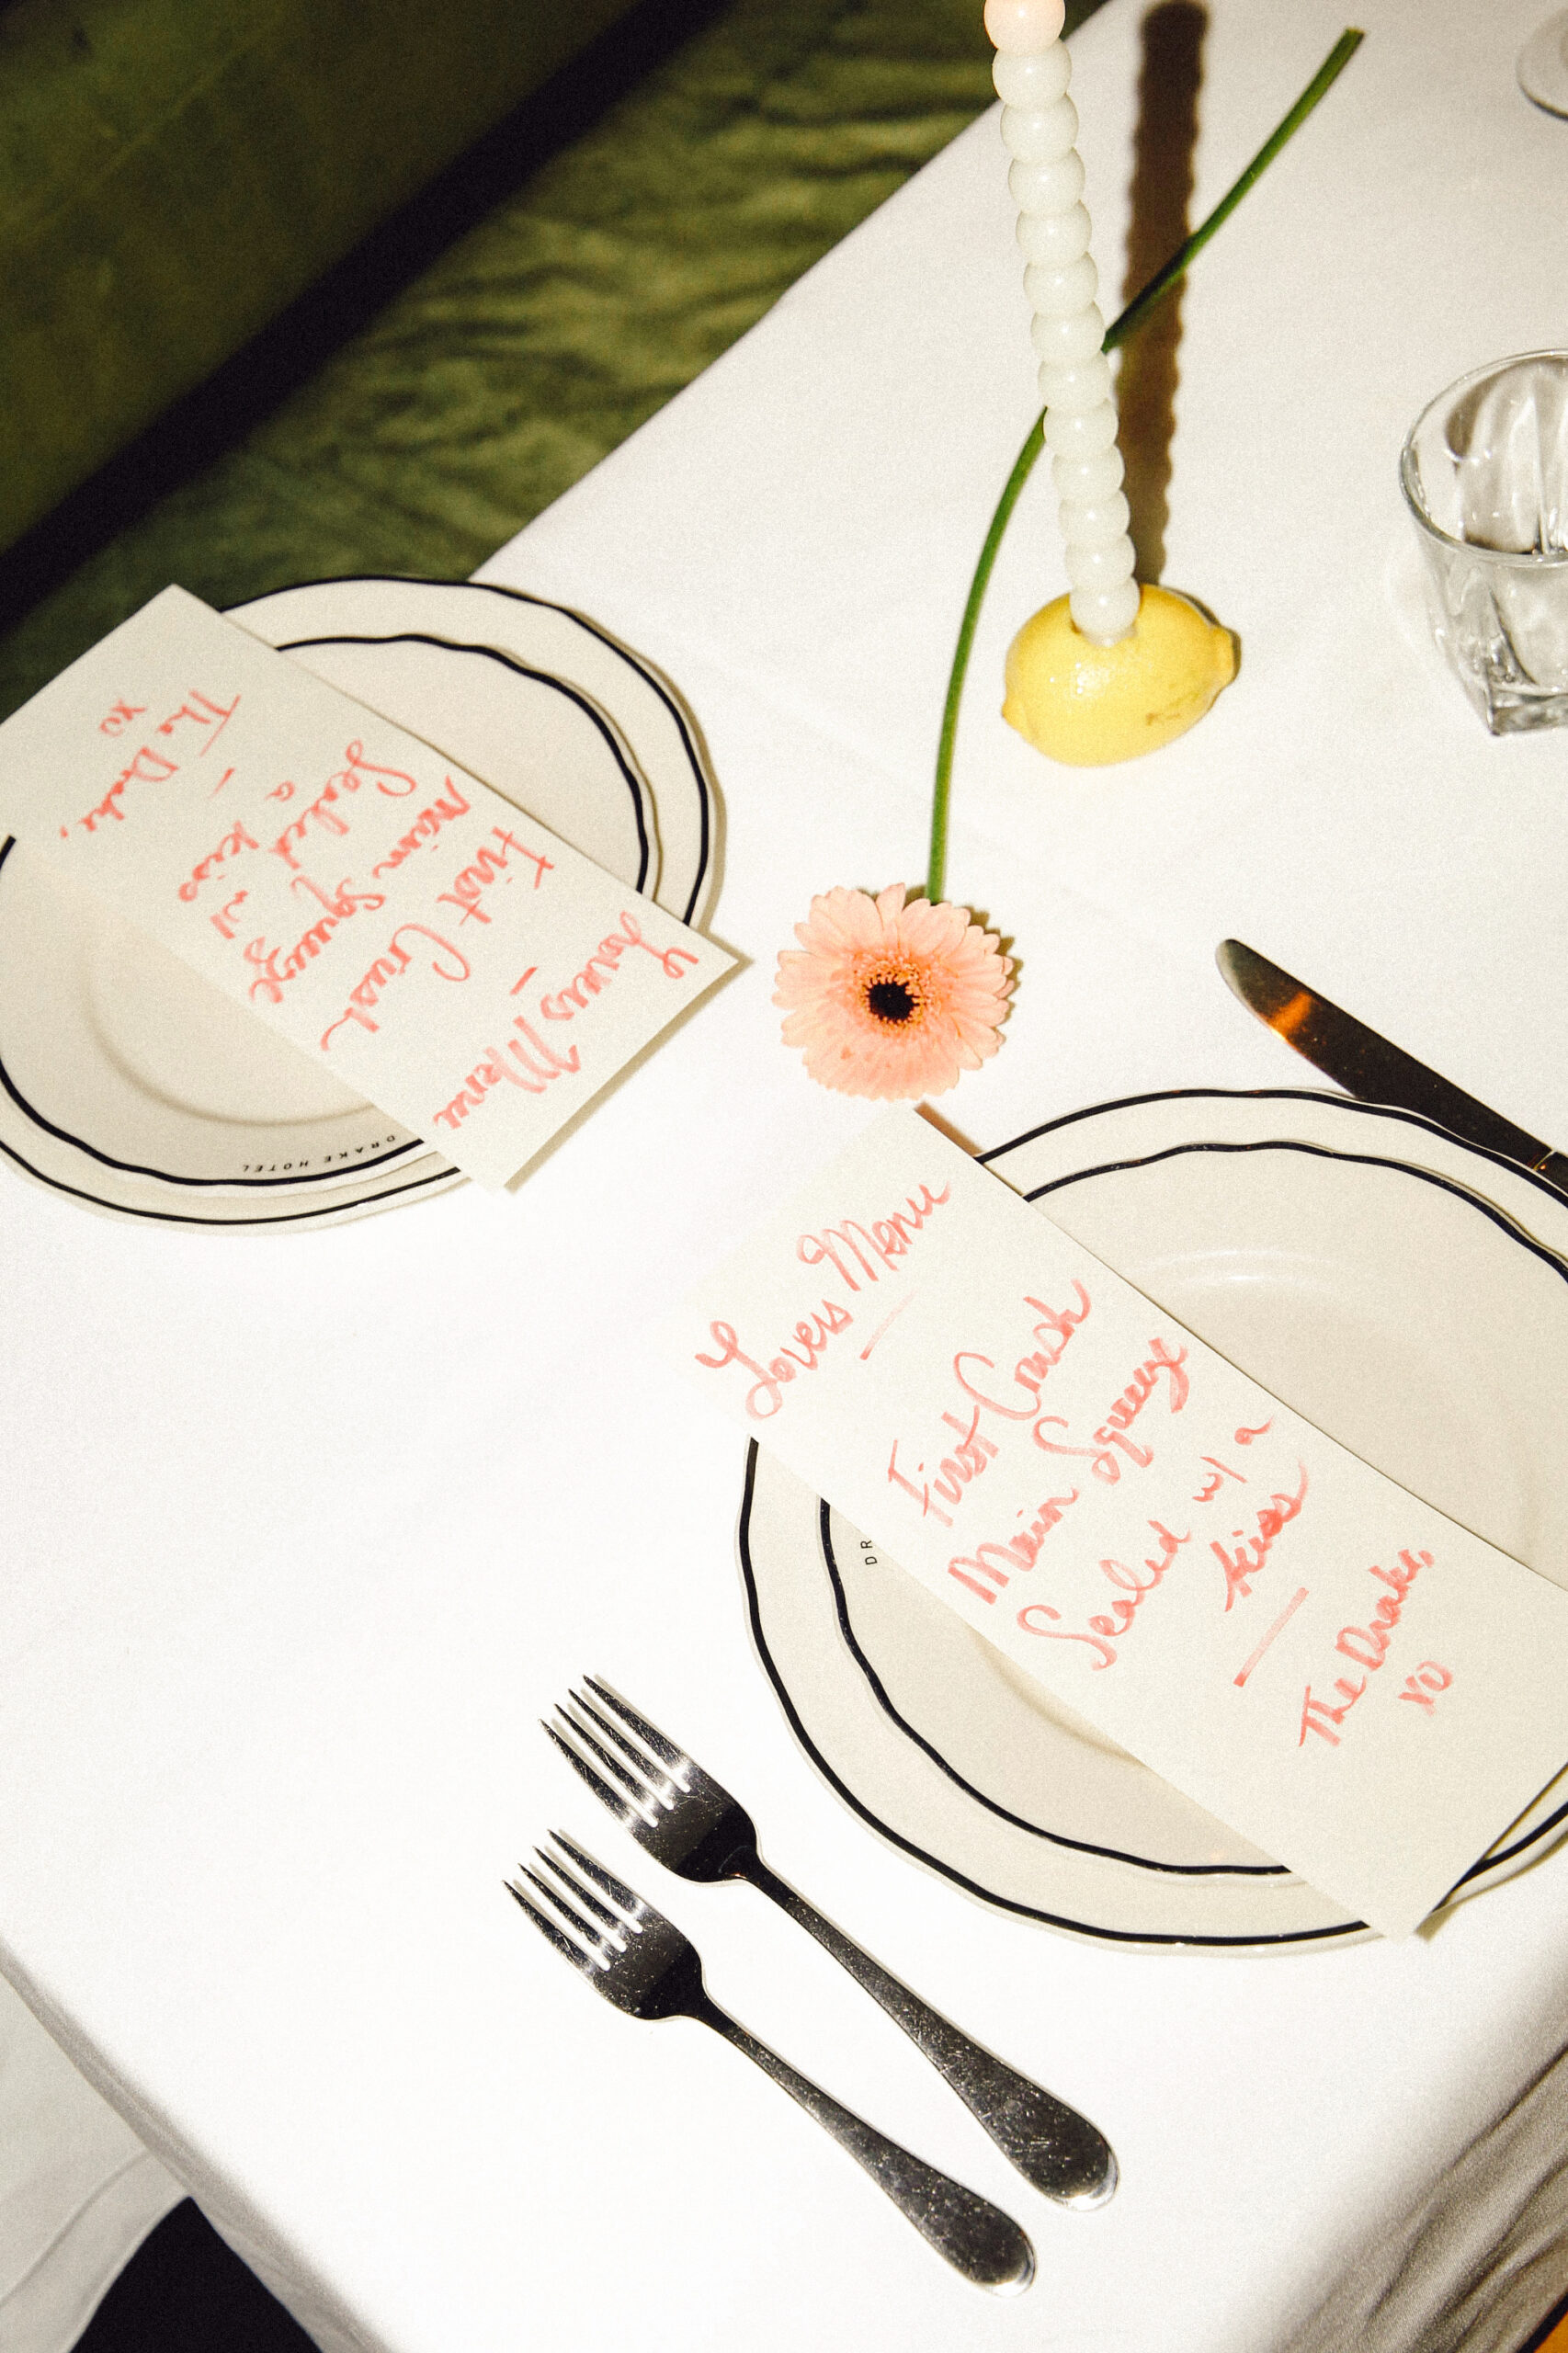 The Drake,
xo
Sealed w/
a kiss
Main Squeeze
First Crush
Lovers Menu
DRAKE HOTEL
Lovers Menu
First Crush
Main Squeeze
Sealed w/ a
kiss
The Drake,
XO
DR